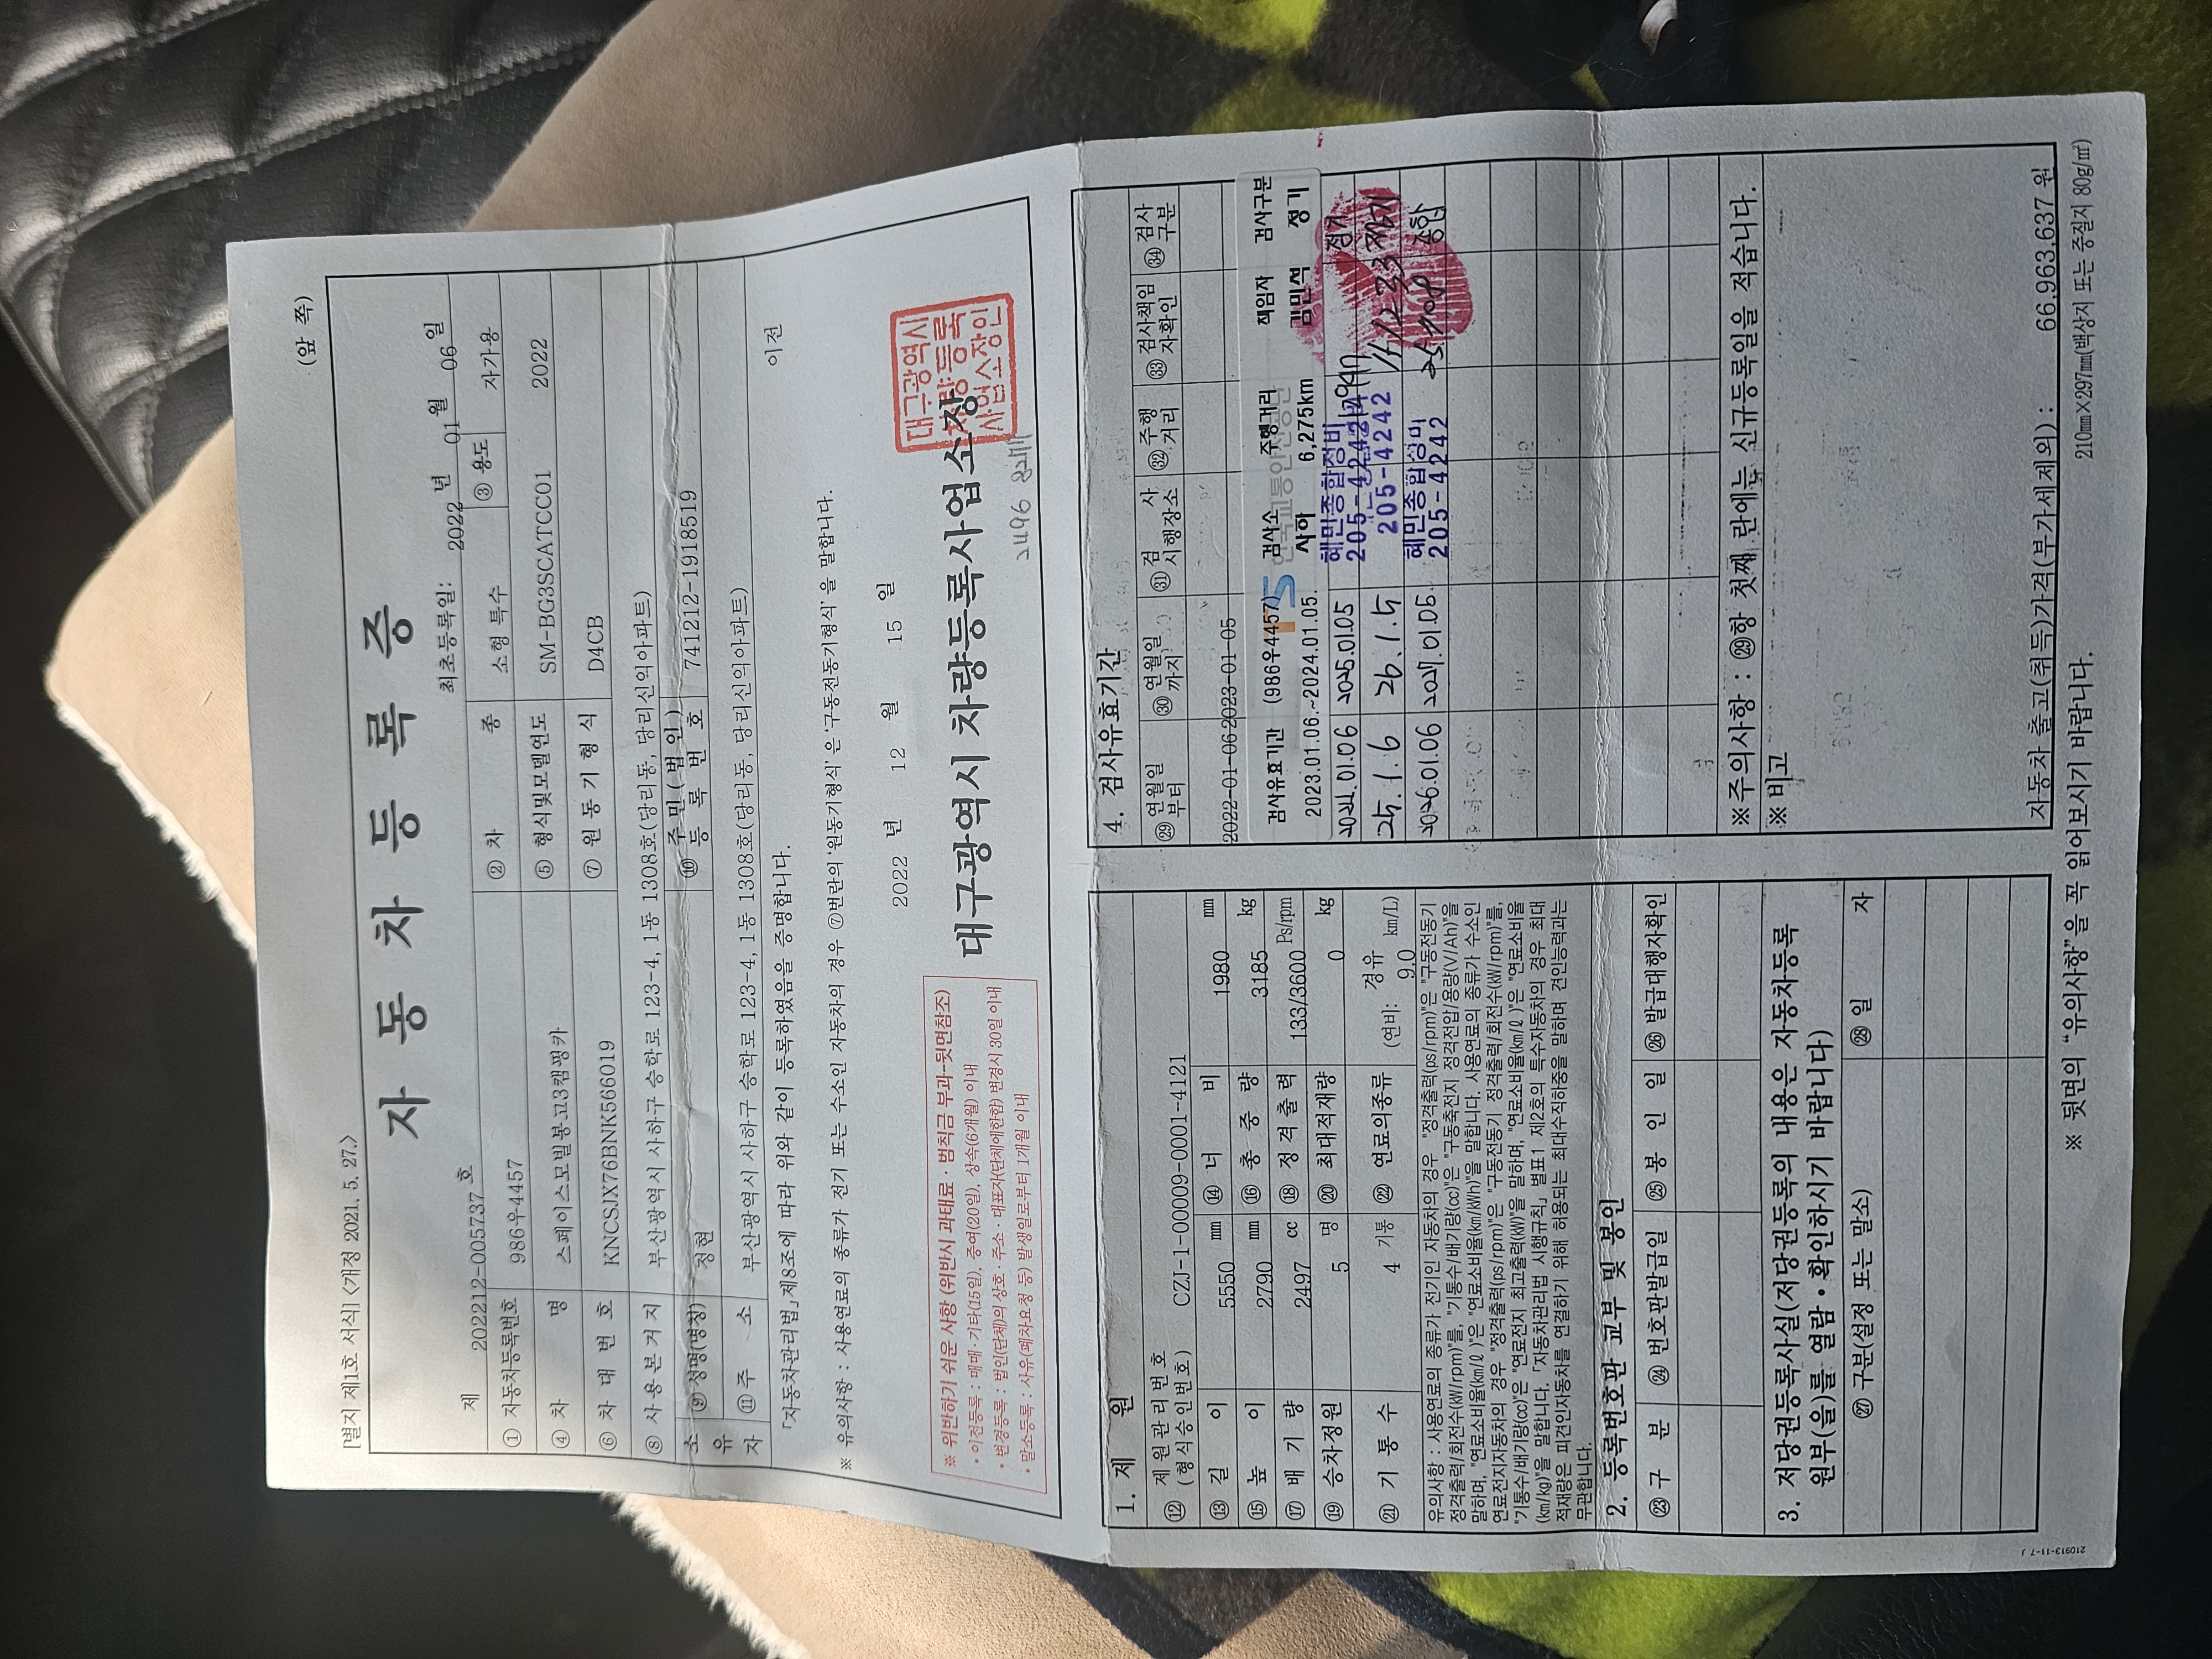 [별지 제1호 서식] <개정 2021. 5. 27.>
(앞 쪽)
자 동 차 등 록 증
제 202212-005737 호
최초등록일: 2022 년 01 월 06 일
① 자동차등록번호 986우4457 ② 차 종 소형 특수 ③ 용도 자가용
④ 차 명 스페이스모빌봉고3캠핑카 ⑤ 형식및모델연도 SM-BG3SCATCC01 2022
⑥ 차 대 번 호 KNCSJX76BNK566019 ⑦ 원 동 기 형 식 D4CB
⑧ 사 용 본 거 지 부산광역시 사하구 승학로 123-4, 1동 1308호(당리동, 당리신익아파트)
소유자 ⑨ 성명(명칭) 정현 ⑩ 주 민 ( 법 인 ) 등 록 번 호 741212-1918519
⑪ 주 소 부산광역시 사하구 승학로 123-4, 1동 1308호(당리동, 당리신익아파트)
「자동차관리법」제8조에 따라 위와 같이 등록하였음을 증명합니다.
이전
※ 유의사항 : 사용연료의 종류가 전기 또는 수소인 자동차의 경우 ⑦번란의 '원동기형식' 은 '구동전동기형식' 을 말합니다.
2022 년 12 월 15 일
※ 위반하기 쉬운 사항 (위반시 과태료 · 범칙금 부과-뒷면참조)
• 이전등록 : 매매 · 기타(15일), 증여(20일), 상속(6개월) 이내
• 변경등록 : 법인(단체)의 상호 · 주소 · 대표자(단체에한함) 변경시 30일 이내
• 말소등록 : 사유(폐차요청 등) 발생일로부터 1개월 이내
대구광역시 차량등록사업소장
대구광역시
차량등록
사업소장인
2496
1. 제 원
⑫ 제원관리번호 (형식승인번호) CZJ-1-00009-0001-4121
⑬ 길 이 5550 mm ⑭ 너 비 1980 mm
⑮ 높 이 2790 mm ⑯ 총 중 량 3185 kg
⑰ 배 기 량 2497 cc ⑱ 정 격 출 력 133/3600 Ps/rpm
⑲ 승차정원 5 명 ⑳ 최대적재량 0 kg
㉑ 기 통 수 4 기통 ㉒ 연료의종류 경유 (연비: 9.0 km/L)
유의사항 : 사용연료의 종류가 전기인 자동차의 경우 "정격출력(ps/rpm)"은 "구동전동기
정격출력/회전수(kW/rpm)"를, "기통수/배기량(cc)"은 "구동축전지 정격전압/용량(V/Ah)"을
말하며, "연료소비율(km/ℓ)"은 "연료소비율(km/kWh)"을 말합니다. 사용연료의 종류가 수소인
연료전지자동차의 경우 "정격출력(ps/rpm)"은 "구동전동기 정격출력/회전수(kW/rpm)"를,
"기통수/배기량(cc)"은 "연료전지 최고출력(kW)"을 말하며, "연료소비율(km/ℓ)"은 "연료소비율
(km/kg)"을 말합니다. 「자동차관리법 시행규칙」 별표1 제2호의 특수자동차의 경우 최대
적재량은 피견인자동차를 연결하기 위해 허용되는 최대수직하중을 말하며 견인능력과는
무관합니다.
2. 등록번호판 교부 및 봉인
㉓ 구 분 ㉔ 번호판발급일 ㉕ 봉 인 일 ㉖ 발급대행자확인
3. 저당권등록사실(저당권등록의 내용은 자동차등록
원부(을)를 열람 · 확인하시기 바랍니다)
㉗ 구분(설정 또는 말소) ㉘ 일 자
4. 검사유효기간
㉙ 연월일 부터 ㉚ 연월일 까지 ㉛ 검 사 시행장소 ㉜ 주행 거리 ㉝ 검사책임 자확인 ㉞ 검사 구분
2022-01-06 2023-01-05
검사유효기간 (986우4457) 검사소 주행거리 책임자 검사구분
2023.01.06.~2024.01.05. 사하 6,275km 김민석 정기
TS 한국교통안전공단
2024.01.06 2025.01.05 혜민종합정비 205-4242 정기
25.1.6 26.1.5 205-4242
2026.01.06 2027.01.05. 혜민종합정비 205-4242 종합
※주의사항 : ㉙항 첫째 란에는 신규등록일을 적습니다.
※ 비고
자동차 출고(취득)가격(부가세제외) : 66,963,637 원
※ 뒷면의 “유의사항”을 꼭 읽어보시기 바랍니다.
210㎜×297㎜(백상지 또는 중질지 80g/㎡)
210913-11-7 J